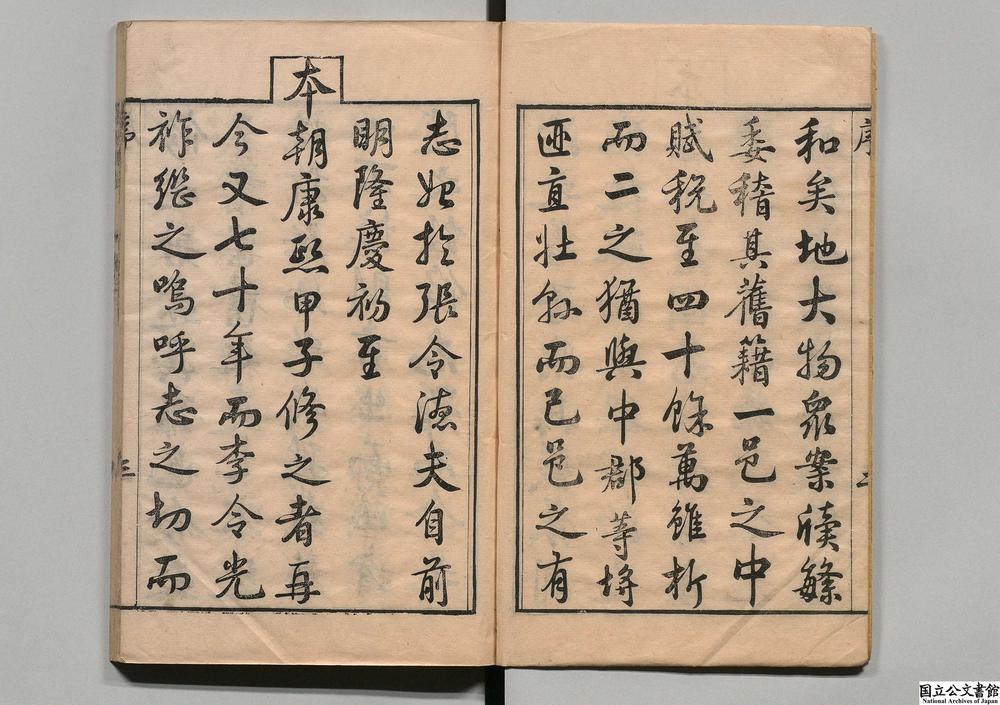 序
和矣地大物眾案牘繁
委稽其舊籍一邑之中
賦稅至四十餘萬雖析
而二之猶與中郡等埒
迹直壯縣而已邑之有
二
志始於張令德夫自前
明隆慶初至
本
朝康熙甲子修之者再
今又七十年而李令光
祚繼之嗚呼志之切而
序
三
国立公文書館
National Archives of Japan